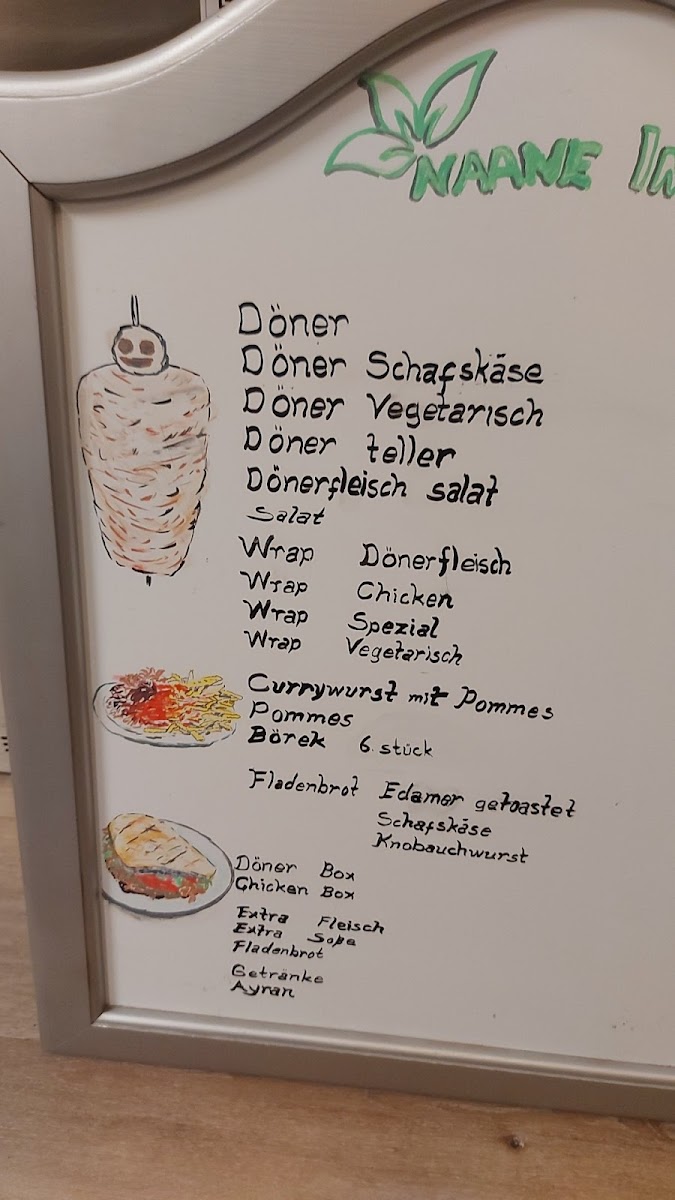 NAANE
Döner
Döner Schafskäse
Döner Vegetarisch
Döner teller
Dönerfleisch salat
Salat
Wrap Dönerfleisch
Wrap Chicken
Wrap Spezial
Wrap Vegetarisch
Currywurst mit Pommes
Pommes
Börek 6. stück
Fladenbrot Edamer getoastet
Schafskäse
Knobauchwurst
Döner Box
Chicken Box
Extra Fleisch
Extra Soße
Fladenbrot
Getränke
Ayran